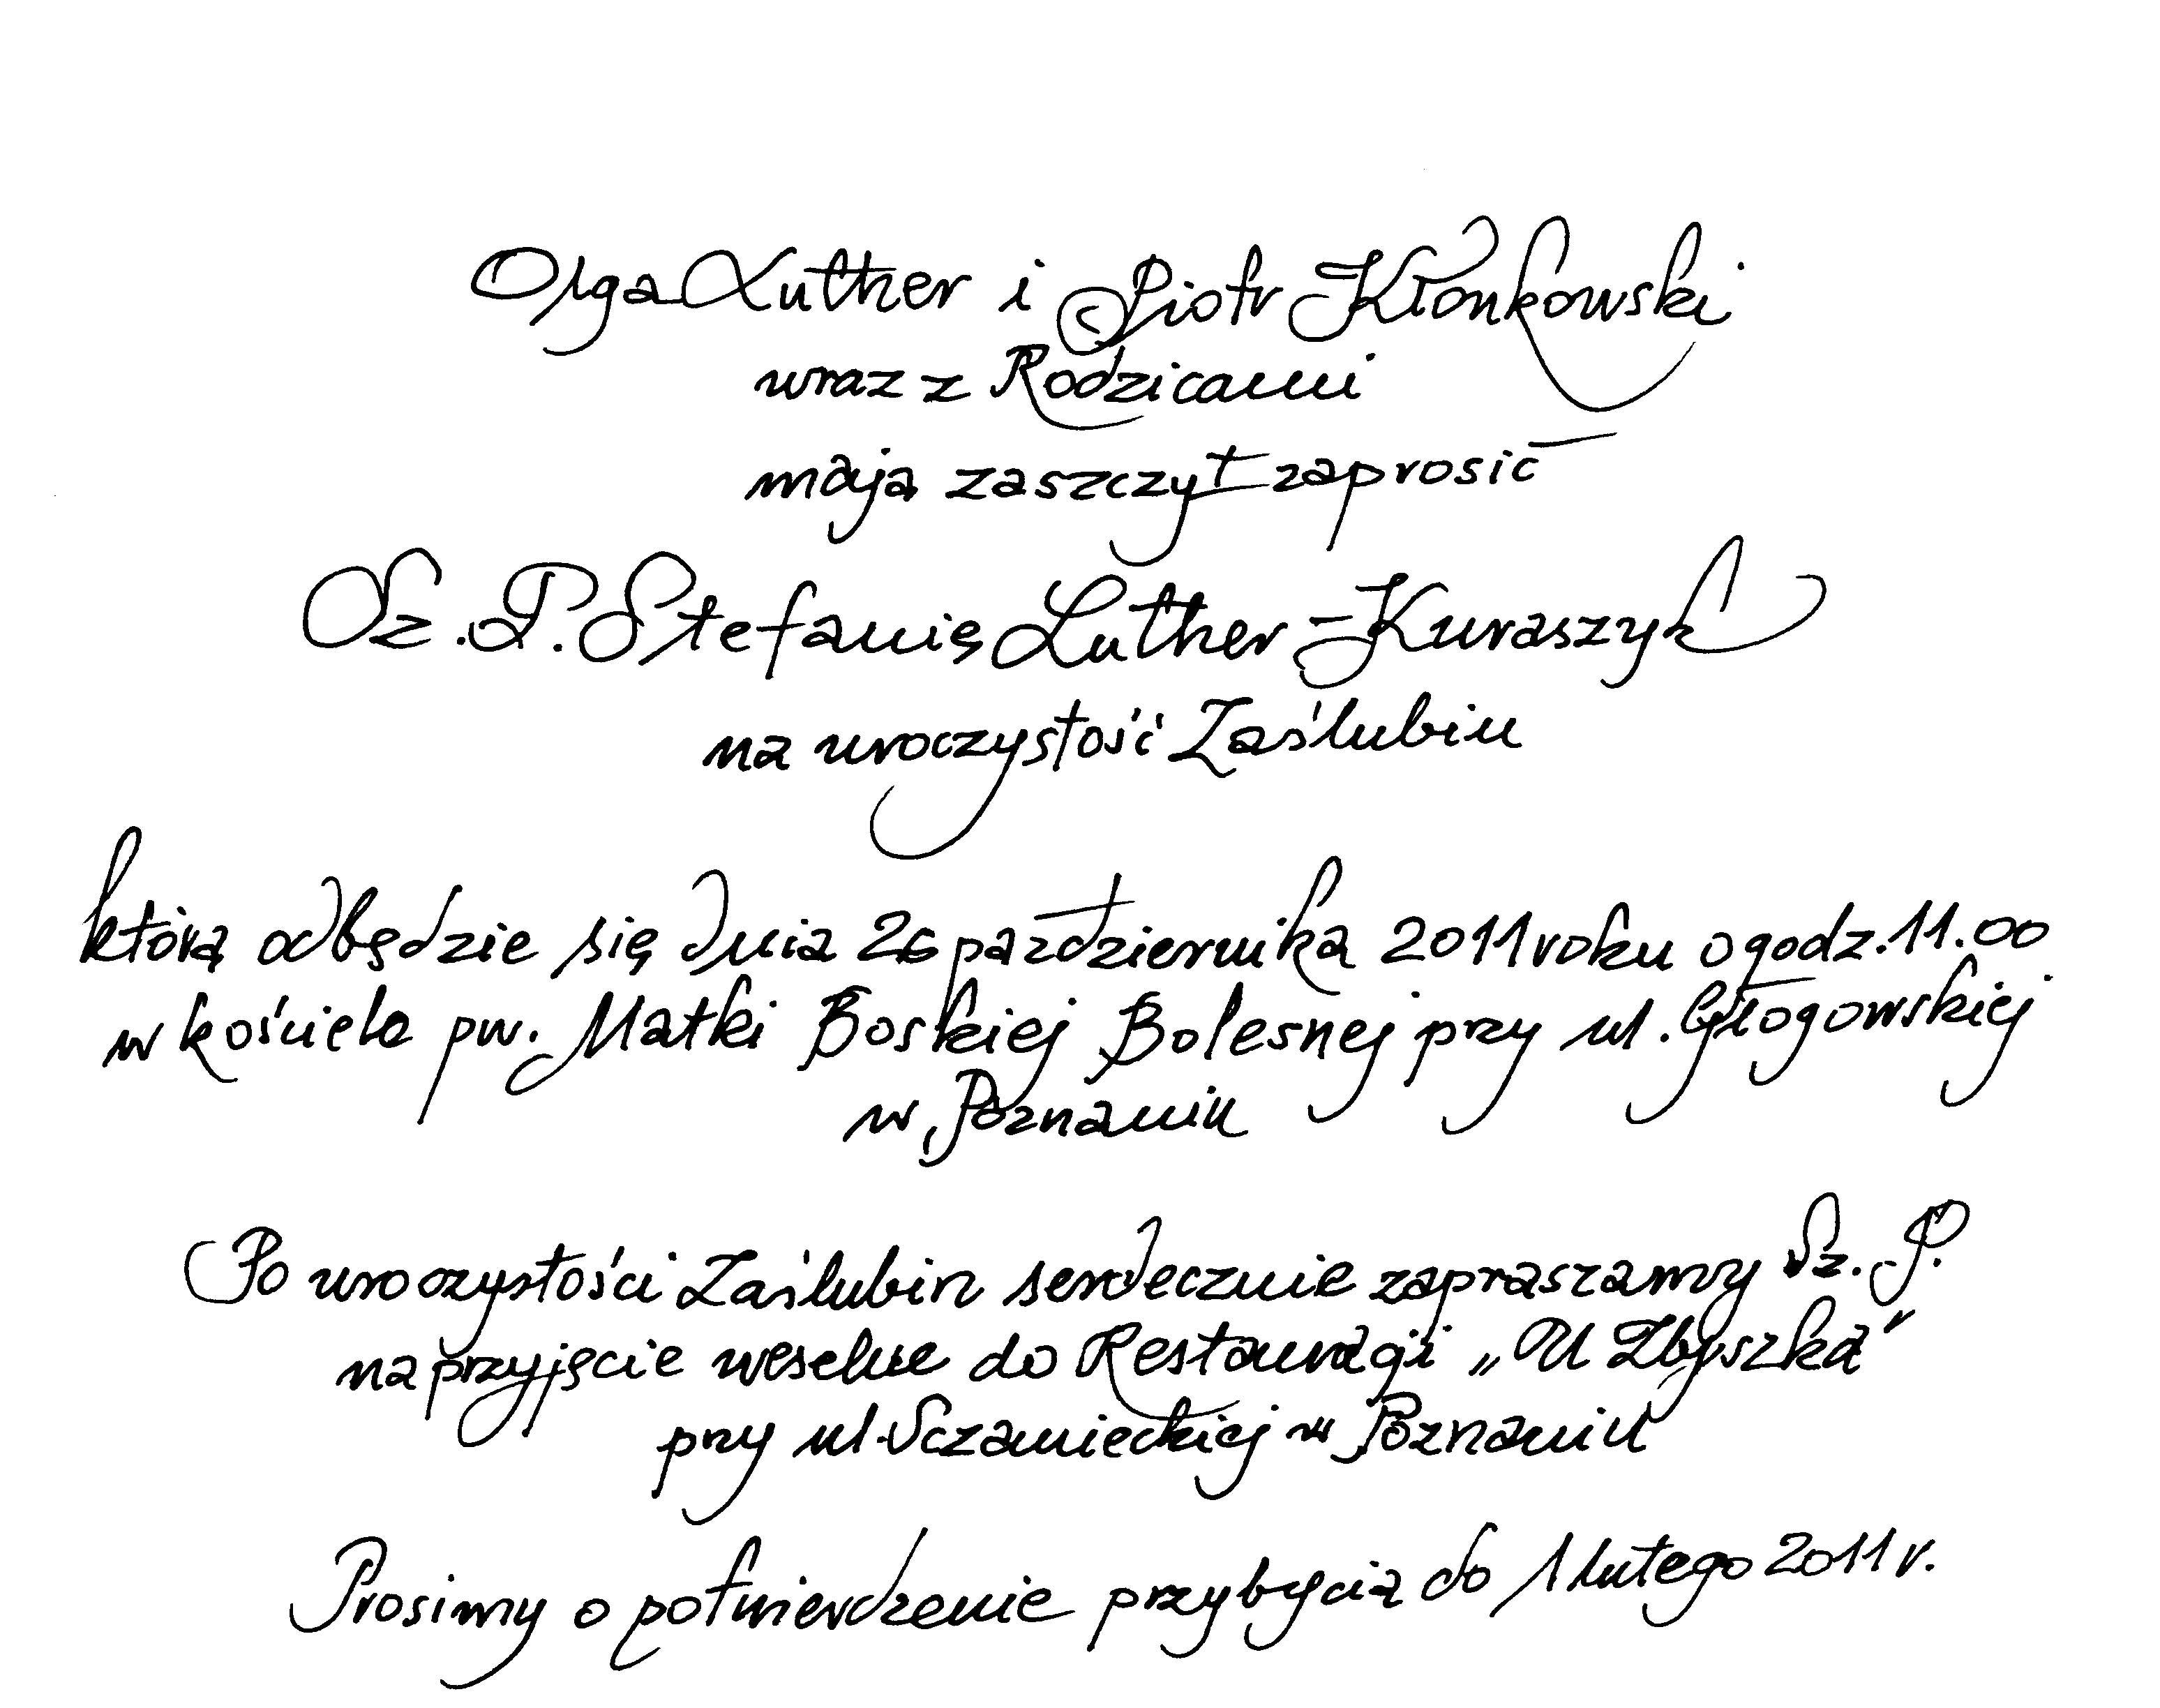 Olga Luther i Piotr Kłonkowski
wraz z Rodzicami
mają zaszczyt zaprosić
Sz. P. Stefanię Luther-Kuraszyk
na uroczystość Zaślubin
która odbędzie się dnia 26 października 2011 roku o godz. 11.00
w kościele pw. Matki Boskiej Bolesnej przy ul. Głogowskiej
w Poznaniu
Po uroczystości Zaślubin serdecznie zapraszamy Sz. P.
na przyjęcie weselne do Restauracji „U Zbyszka”
przy ul. Sczanieckiej w Poznaniu
Prosimy o potwierdzenie przybycia do 1 lutego 2011 r.